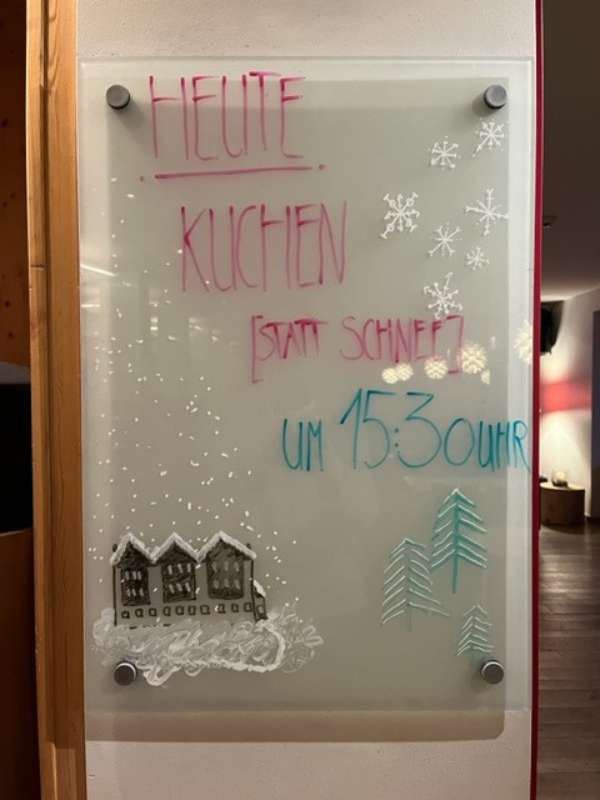 HEUTE
KUCHEN
[STATT SCHNEE]
UM 15:30 UHR